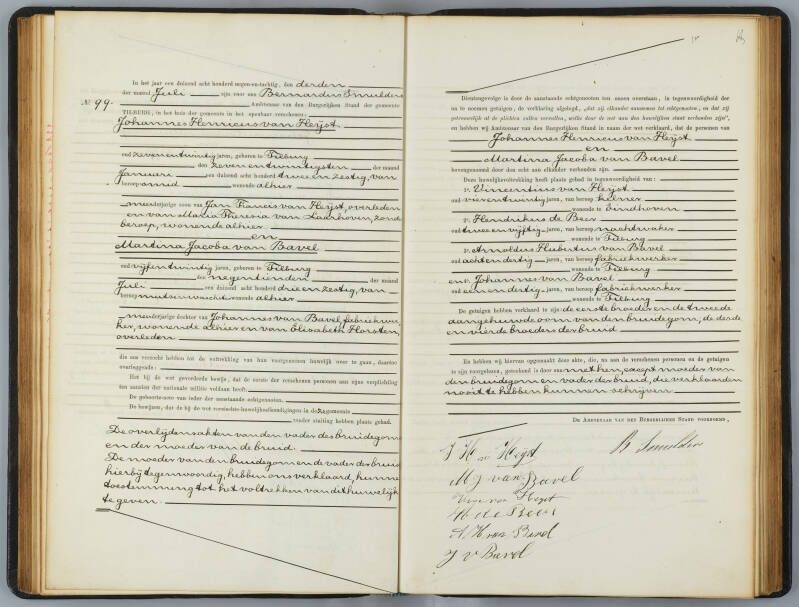 In het jaar een duizend acht honderd negen-en-tachtig, den derden
der maand Juli zijn voor ons Bernardus Smulders
No 99.
Ambtenaar van den Burgerlijken Stand der gemeente
TILBURG, in het huis der gemeente in het openbaar verschenen:
Johannes Henricus van Heyst
oud zevenentwintig jaren, geboren te Tilburg
den zevenentwintigsten der maand
Januari een duizend acht honderd tweeenzestig, van
beroep smid wonende alhier
meerderjarige zoon van Jan Francis van Heyst, overleden
en van Maria Theresia van Laarhoven, zonder
beroep, wonende alhier
en
Martina Jacoba van Bavel
oud vijfentwintig jaren, geboren te Tilburg
den negentienden der maand
Juli een duizend acht honderd drieenzestig, van
beroep mutsenwaschster wonende alhier
meerderjarige dochter van Johannes van Bavel, fabriekwer
ker, wonende alhier en van Elisabeth Horsten,
overleden
die ons verzocht hebben tot de voltrekking van hun voorgenomen huwelijk over te gaan, daartoe
overleggende:
Het bij de wet gevorderde bewijs, dat de eerste der verschenen personen aan zijne verplichting
ten aanzien der nationale militie voldaan heeft
De geboorte-acten van ieder der aanstaande echtgenooten.
De bewijzen, dat de bij de wet vereischte huwelijksafkondigingen in deze gemeente
zonder stuiting hebben plaats gehad.
De overlijdensakten van den vader des bruidegoms
en der moeder van de bruid.
De moeder van den bruidegom en de vader der bruid
hierbij tegenwoordig, hebben ons verklaard, hunne
toestemming tot het voltrekken van dit huwelijk
te geven.
Dientengevolge is door de aanstaande echtgenooten ten onzen overstaan, in tegenwoordigheid der
na te noemen getuigen, de verklaring afgelegd, dat zij elkander aannemen tot echtgenooten, en dat zij
getrouwelijk al de plichten zullen vervullen, welke door de wet aan den huwelijken staat verbonden zijn",
en hebben wij Ambtenaar van den Burgerlijken Stand in naam der wet verklaard, dat de personen van
Johannes Henricus van Heyst
en
Martina Jacoba van Bavel
bovengenoemd door den echt aan elkander verbonden zijn.
Deze huwelijksvoltrekking heeft plaats gehad in tegenwoordigheid van:
1o. Vincentius van Heyst
oud vierentwintig jaren, van beroep kelner
wonende te Eindhoven
2o. Hendrikus de Beer
oud tweeenvijftig jaren, van beroep nachtwaker
wonende te Tilburg
3o. Arnoldus Hubertus van Bavel
oud achtendertig jaren, van beroep fabriekwerker
wonende te Tilburg
en 4o. Johannes van Bavel
oud eenendertig jaren, van beroep fabriekwerker
wonende te Tilburg
De getuigen hebben verklaard te zijn de eerste broeder en de tweede
aangehuwde oom van den bruidegom, de derde
en vierde broeders der bruid
En hebben wij hiervan opgemaakt deze akte, die, na aan de verschenen personen en de getuigen
te zijn voorgelezen, geteekend is door ons met hen, except moeder van
den bruidegom en vader der bruid, die verklaarden
nooit te hebben kunnen schrijven
DE AMBTENAAR VAN DEN BURGERLIJKEN STAND VOORNOEMD,
J H v Heyst
B Smulders
M J van Bavel
van Heyst
H de Beer
A H van Bavel
J v Bavel